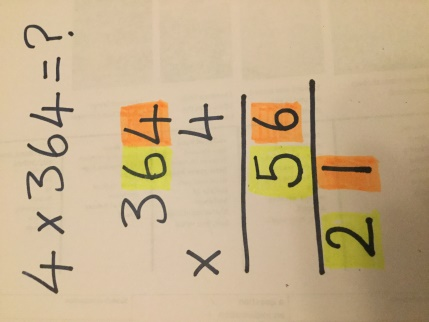 4 x 364 = ?
364
x 4
56
21